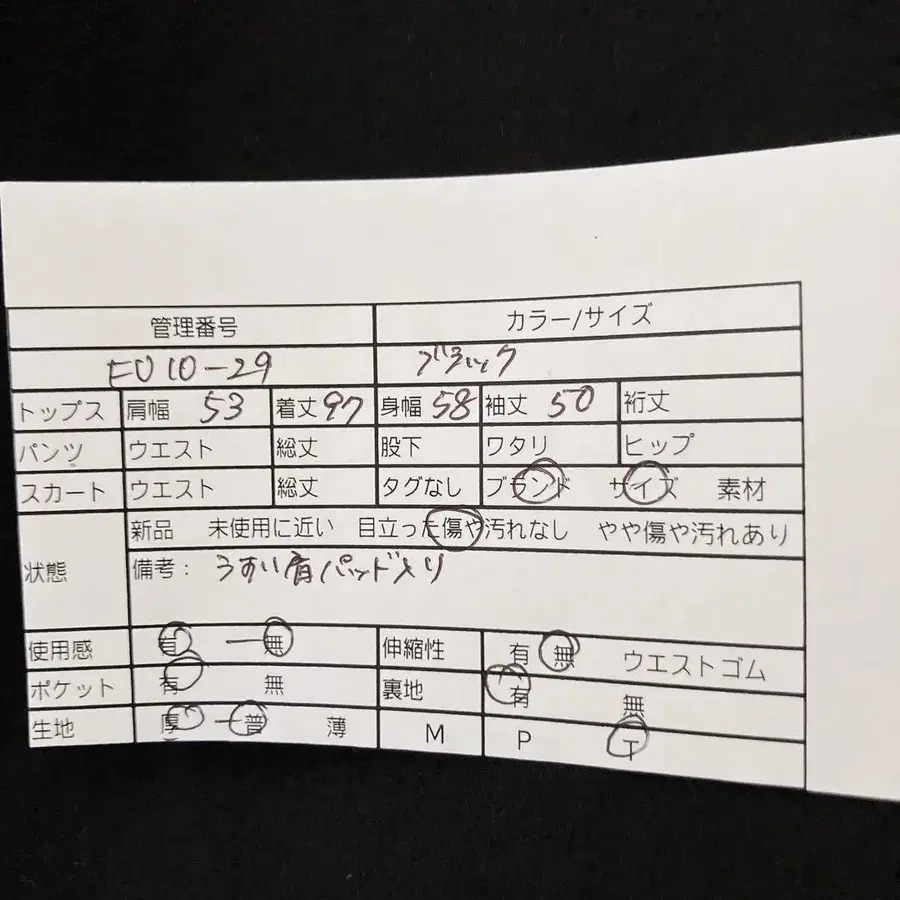 管理番号 カラー/サイズ
EU10-29 ブラック
トップス 肩幅 53 着丈 97 身幅 58 袖丈 50 裄丈
パンツ ウエスト 総丈 股下 ワタリ ヒップ
スカート ウエスト 総丈 タグなし ブランド サイズ 素材
状態 新品 未使用に近い 目立った傷や汚れなし やや傷や汚れあり
備考: うすい肩パッド入り
使用感 有 ー 無 伸縮性 有 無 ウエストゴム
ポケット 有 無 裏地 有 無
生地 厚 ー 普 薄 M P T